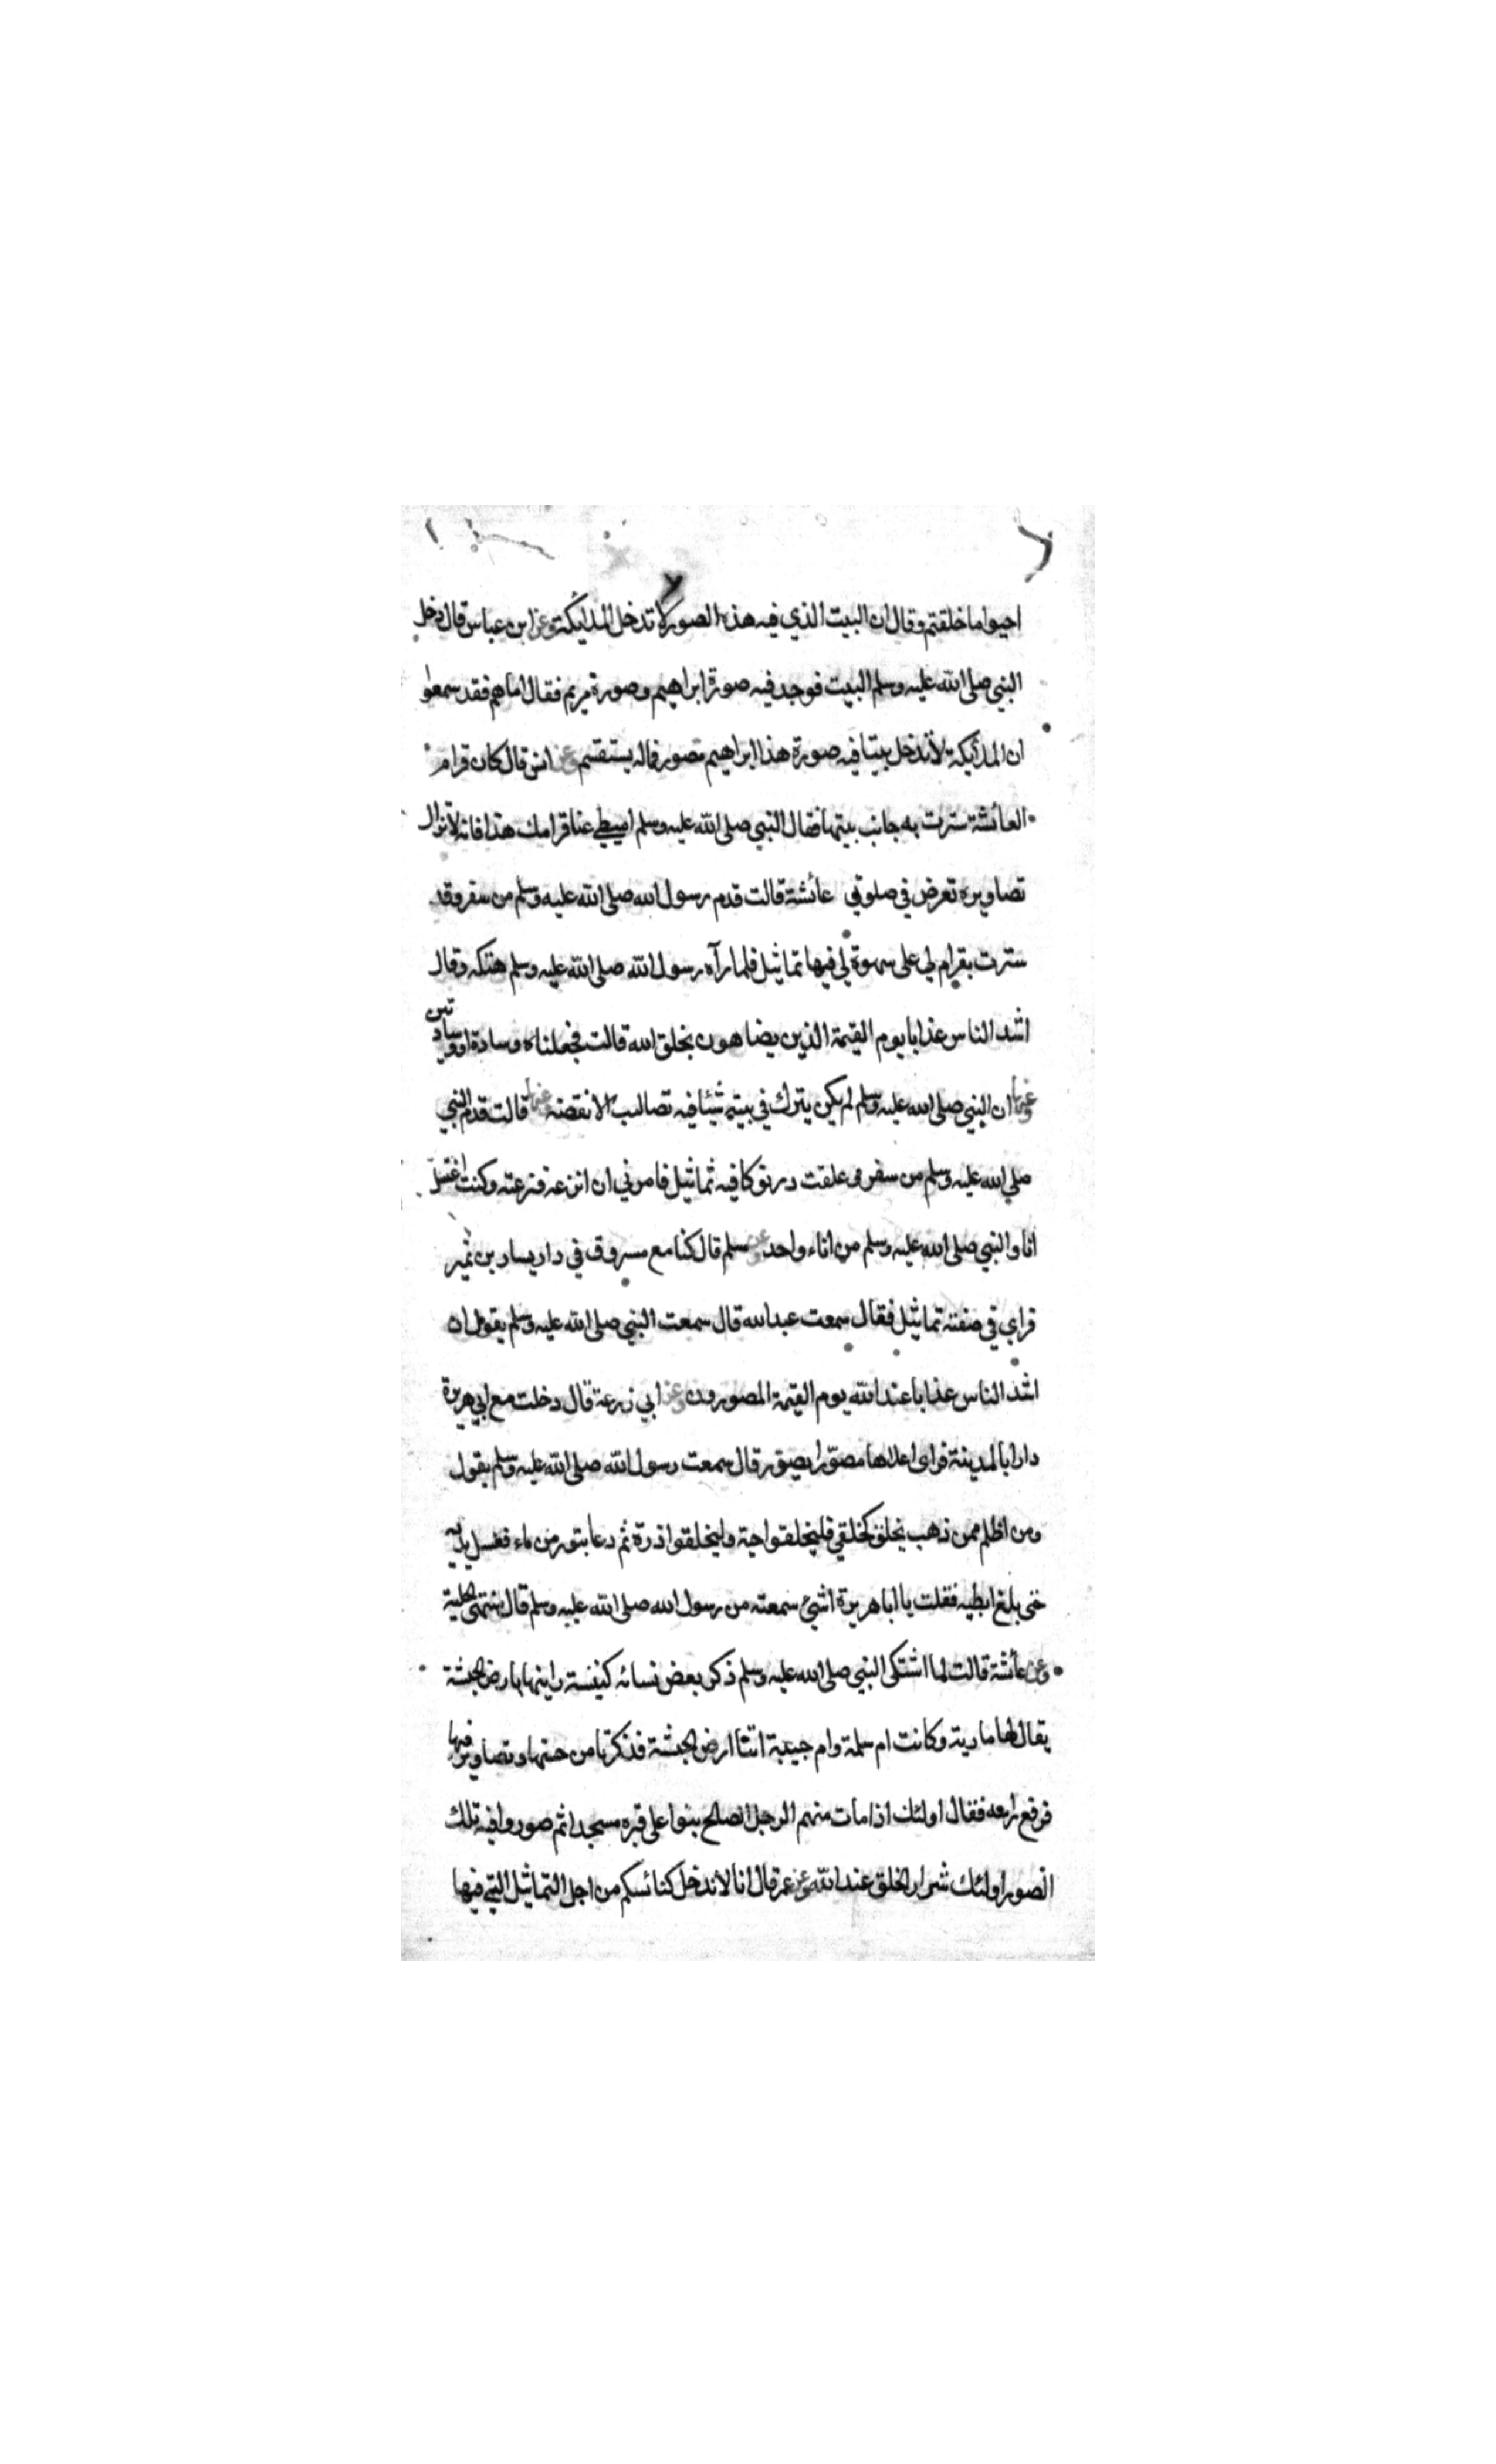 احيوا ما خلقتم وقال ان البيت الذي فيه هذه الصور لا تدخل الملائكة وعن ابن عباس قال دخل
النبي صلى الله عليه وسلم البيت فوجد فيه صورة ابراهيم وصورة مريم فقال اما هم فقد سمعوا
ان الملائكة لا تدخل بيتا فيه صورة هذا ابراهيم مصور فماله يستقسم وعن انس قال كان قرام
لعائشة سترت به جانب بيتها فقال النبي صلى الله عليه وسلم اميطي عنا قرامك هذا فانه لا تزال
تصاويره تعرض في صلوتي عائشة قالت قدم رسول الله صلى الله عليه وسلم من سفر وقد
سترت بقرام لي على سهوة لي فيها تماثيل فلما رآه رسول الله صلى الله عليه وسلم هتكه وقال
اشد الناس عذابا يوم القيمة الذين يضاهون بخلق الله قالت فجعلناه وسادة او وسادتين
وعنها ان النبي صلى الله عليه وسلم لم يكن يترك في بيته شيئا فيه تصاليب الا نقضه وعنها قالت قدم النبي
صلى الله عليه وسلم من سفر وعلقت درنوكا فيه تماثيل فامرني ان انزعه فنزعته وكنت اغتسل
انا والنبي صلى الله عليه وسلم من اناء واحد وعن مسلم قال كنا مع مسروق في دار يسار بن نمير
فراى في صفته تماثيل فقال سمعت عبد الله قال سمعت النبي صلى الله عليه وسلم يقول ان
اشد الناس عذابا عند الله يوم القيمة المصورون وعن ابي زرعة قال دخلت مع ابي هريرة
دارا بالمدينة فراى اعلاها مصورا يصور قال سمعت رسول الله صلى الله عليه وسلم يقول
ومن اظلم ممن ذهب يخلق كخلقي فليخلقوا حبة وليخلقوا ذرة ثم دعا بتور من ماء فغسل يديه
حتى بلغ ابطيه فقلت يا ابا هريرة اشيئ سمعته من رسول الله صلى الله عليه وسلم قال منتهى الحلية
وعن عائشة قالت لما اشتكى النبي صلى الله عليه وسلم ذكر بعض نسائه كنيسة راينها بارض الحبشة
يقال لها مارية وكانت ام سلمة وام حبيبة اتتا ارض الحبشة فذكرتا من حسنها وتصاوير فيها
فرفع راسه فقال اولئك اذا مات منهم الرجل الصالح بنوا على قبره مسجدا ثم صوروا فيه تلك
الصور اولئك شرار الخلق عند الله وعن عمر قال انا لا ندخل كنائسكم من اجل التماثيل التي فيها